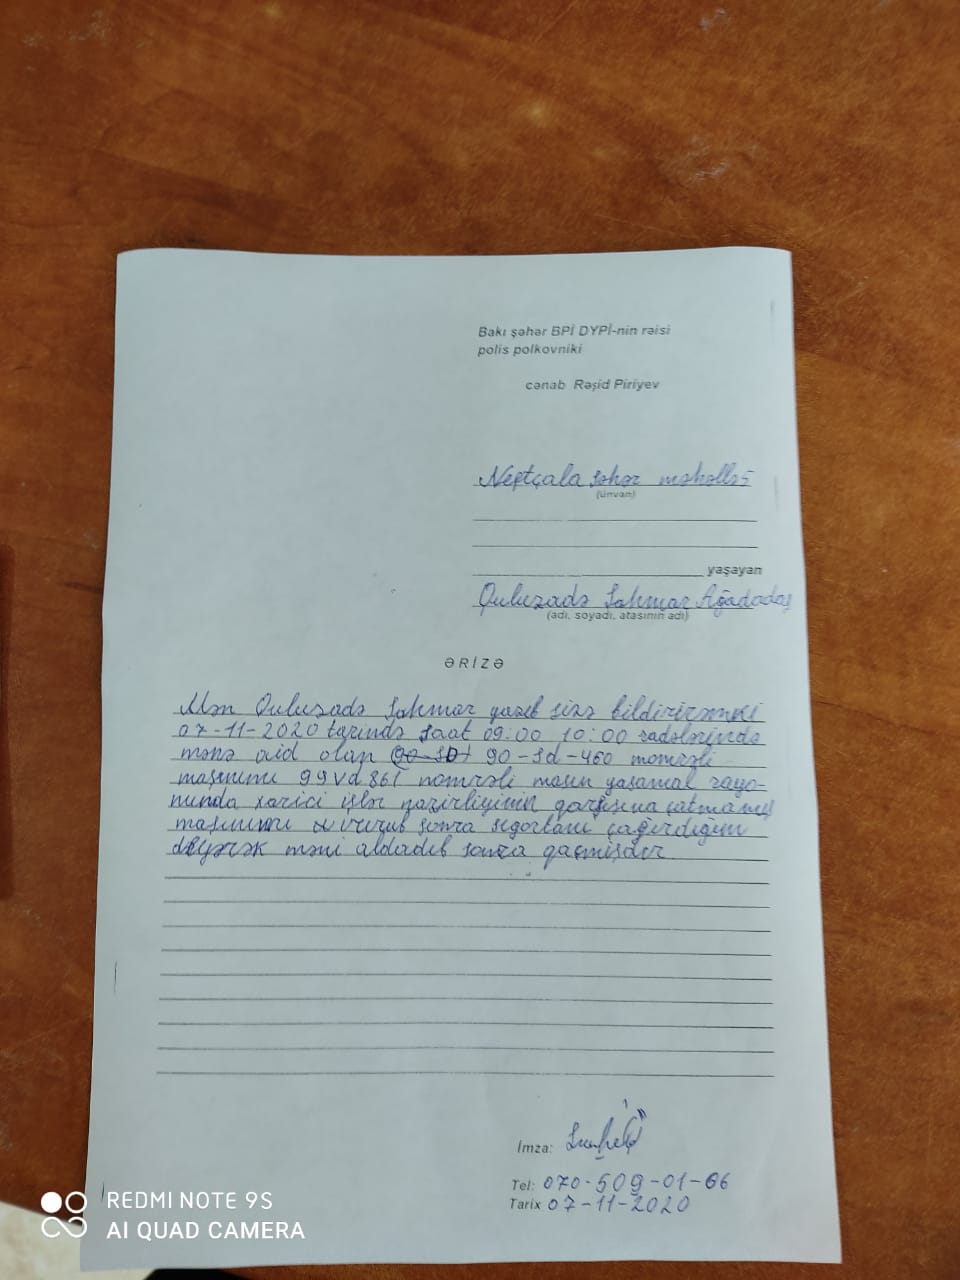 Bakı şəhər BPİ DYPİ-nin rəisi
polis polkovniki
cənab Rəşid Piriyev
Neftçala şəhər məhəlləs
(ünvan)
yaşayan
Quluzadə Şahmar Ağadadaş
(adı, soyadı, atasının adı)
ƏRİZƏ
Mən Quluzadə Şahmar yazıb sizə bildirirəmki
07-11-2020 tarində saat 09:00 10:00 radələrində
mənə aid olan 90-Sd-460 nomrəli
maşınımı 99vd861 nomrəli maşın yasamal rayo-
nunda xarici işlər nazirliyinin qarşısına çatmamış
maşınımı vurub sonra sığortanı çağırdığını
diyərək məni aldadıb sonra qaçmişdır
İmza:
Tel: 070-509-01-06
Tarix 07-11-2020
REDMI NOTE 9S
AI QUAD CAMERA